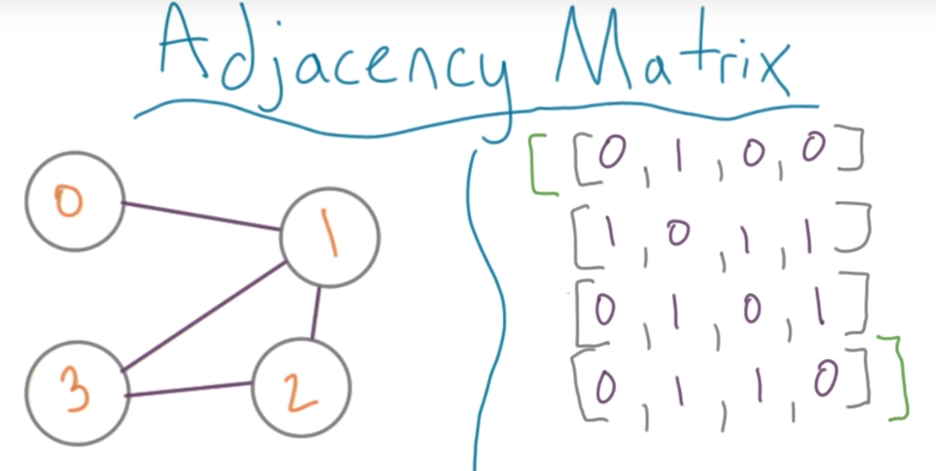 Adjacency Matrix
0
1
3
2
[[0, 1, 0, 0]
[1, 0, 1, 1]
[0, 1, 0, 1]
[0, 1, 1, 0]]